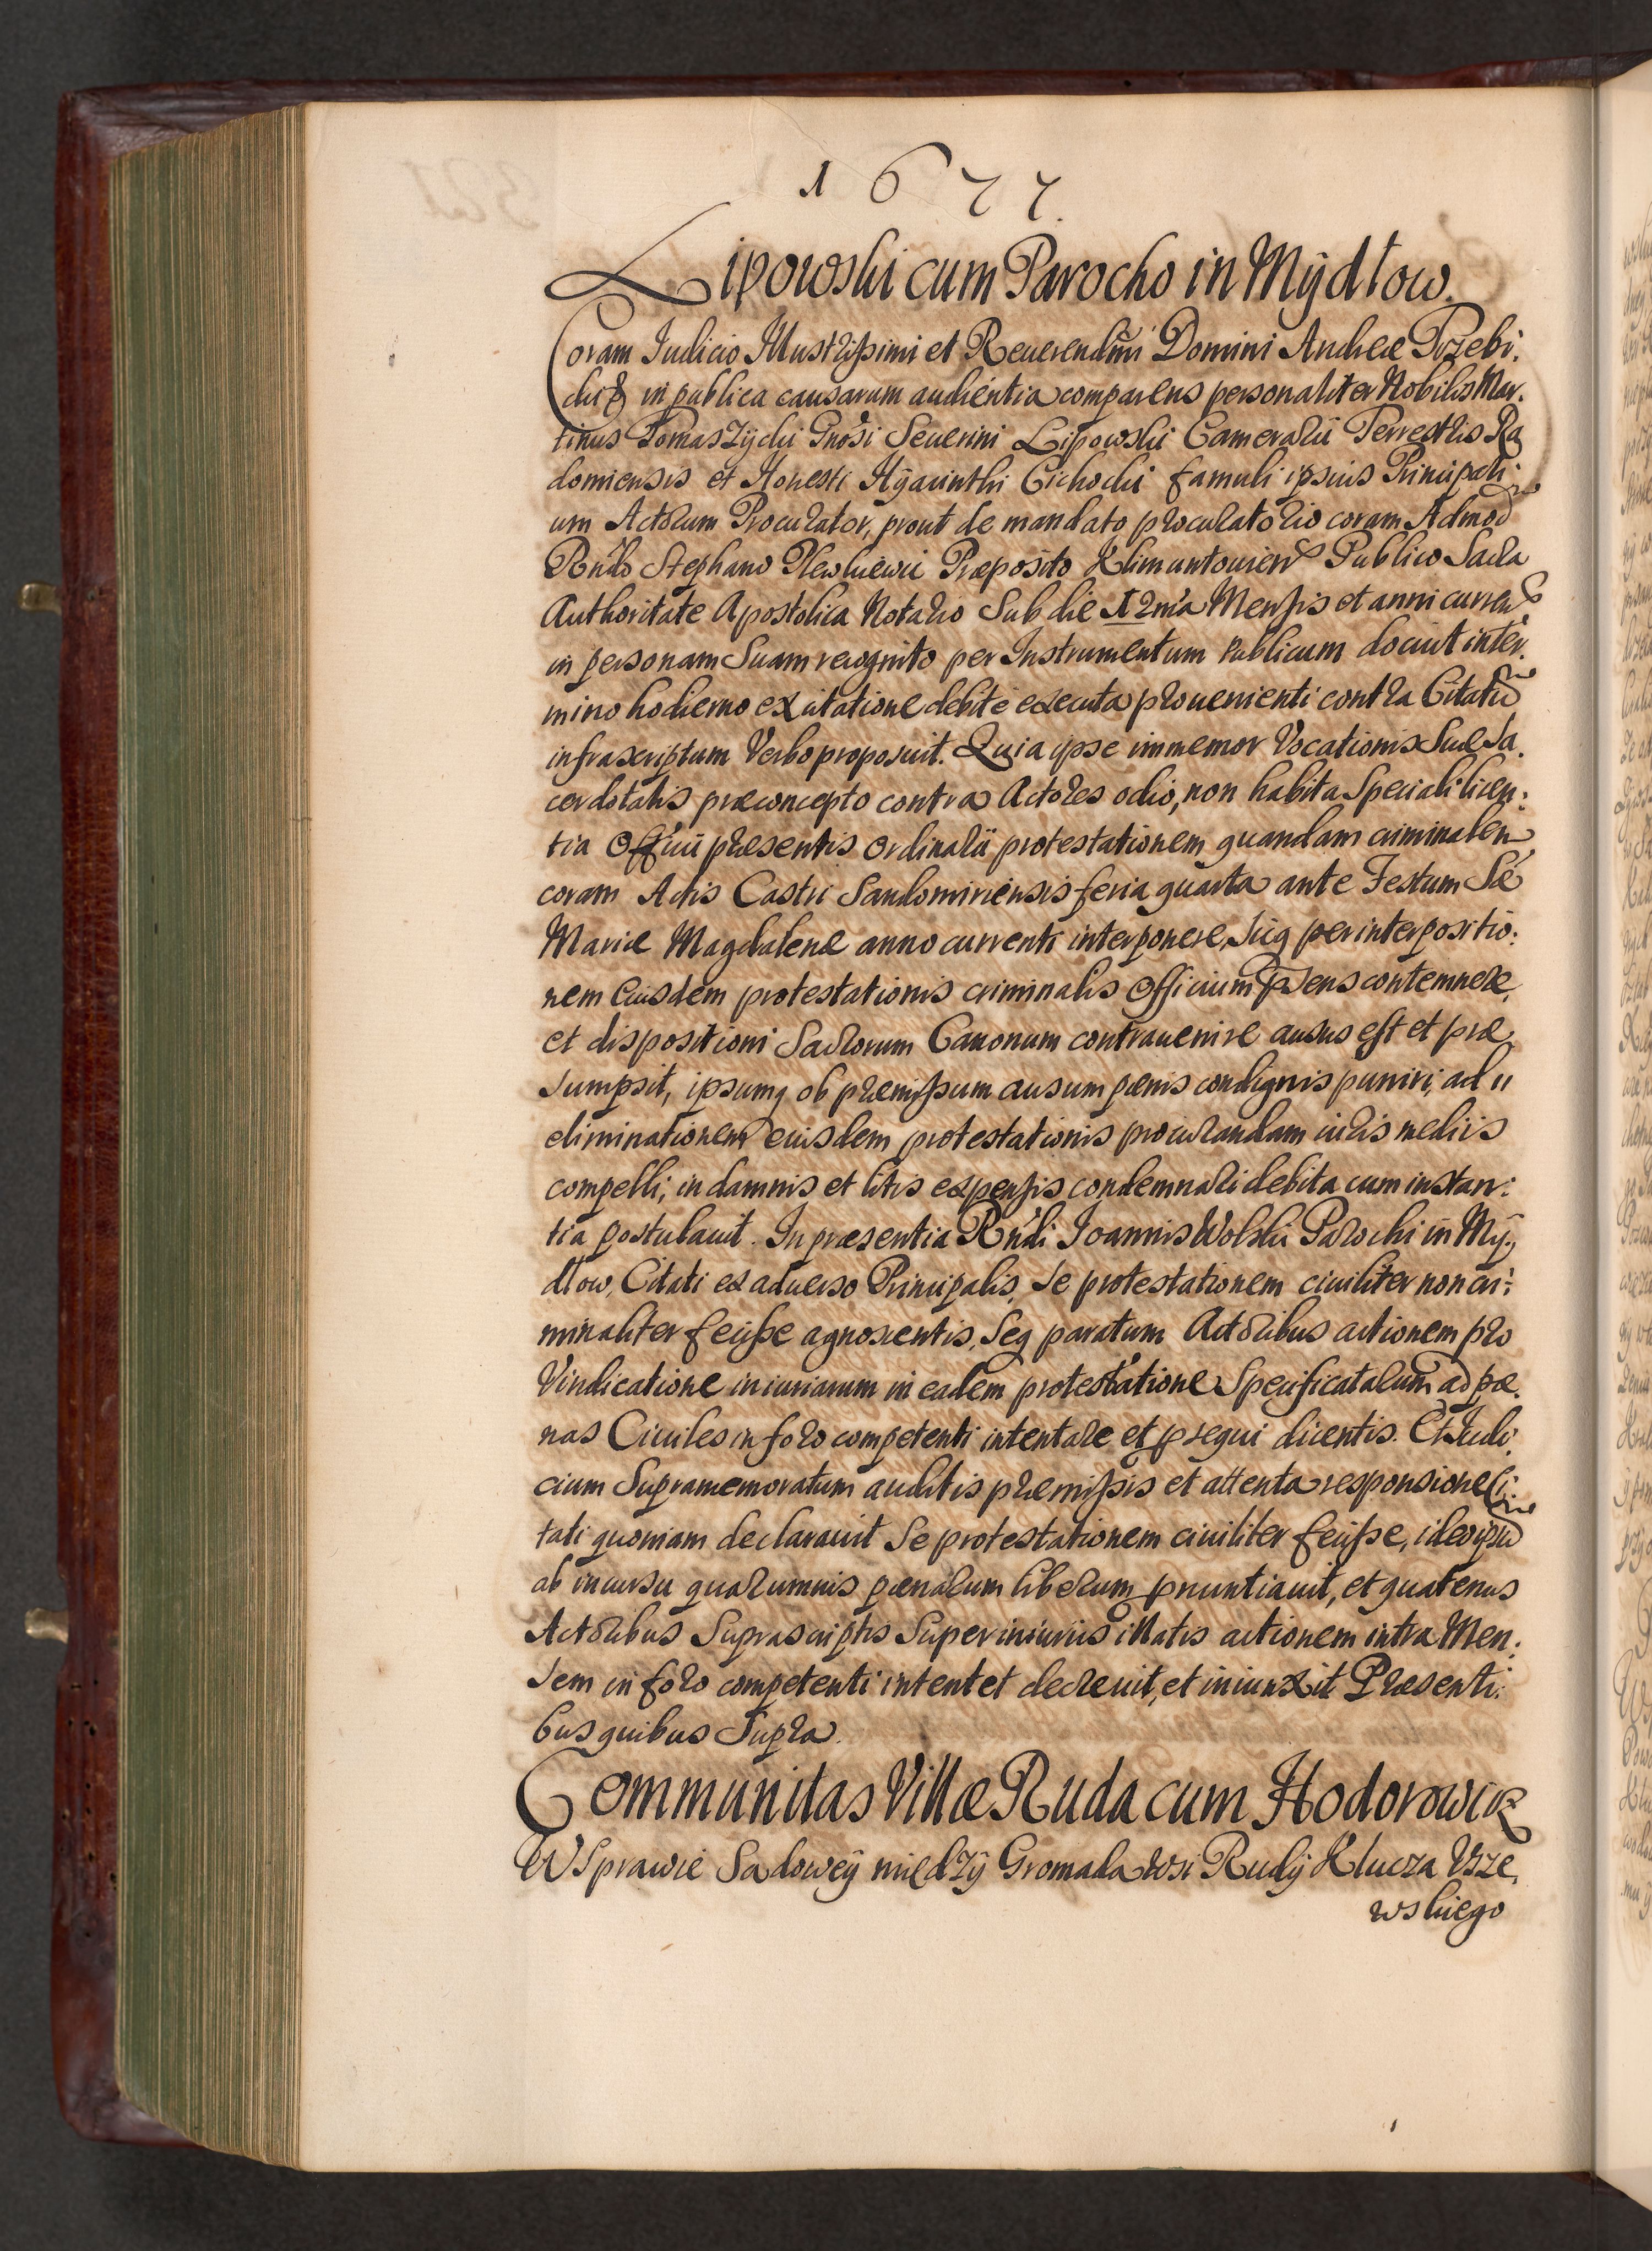 1677.
Lipowski cum Parocho in Mÿdłow.
Coram Iudicio Illustrissimi et Reuerendmi Domini Andreæ Trzebi:
cki & in publica causarum audientia comparens personaliter Nobilis Mar:
tinus Tomaszÿcki Gnosi Seuerini Lipowski Camerarii Terrestris Ra
domiensis et Honesti Hÿacinthi Cichocki famuli ipsius Principali:
um Actorum Procurator, prout de mandato procuratorio coram Admod
Rndo Stephano Præposito Klimuntouien Publico Sacra
Authoritate Apostolica Notario sub die X2ma Mensis et anni curren
in personam suam recognito per Instrumentum Publicum docuit in ter:
mino hodierno ex citatione debitè executa prouenienti contra Citatū
infrascriptum Verbo proposuit. Quia ipse immemor Vocationis Suæ Sa:
cerdotalis præconcepto contra Actores odio, non habita Speciali licen:
tia Officii præsentis Ordinarii protestationem quandam criminalem
coram Actis Castri Sandomiriensis feria quarta ante Festum Sæ
Mariæ Magdalenæ anno currenti interponere, sicq per interpositio:
nem eiusdem protestationis criminalis Officium præsens contemnere,
et dispositioni Sacrorum Canonum contrauenire ausus est et præ
sumpsit, ipsumq ob præmissum ausum pænis condignis puniri; ad "
eliminationem eiusdem protestationis procurandam iuris mediis
compelli; in damnis et litis expensis condemnari debita cum instan:
tia postulauit. In præsentia Rndi Ioannis Wolski Parochi in Mÿ:
dłow, Citati ex aduerso Principalis, se protestationem ciuiliter non cri:
minaliter fecisse agnoscentis, Seq paratum Actoribus actionem pro
Vindicatione iniuriarum in eadem protestatione Specificatarum ad pæ:
nas Ciuiles in foro competenti intentare et psequi dicentis. Et Iudi:
cium Supramemoratum auditis præmissis et attenta responsione Ci:
tati quoniam declarauit Se protestationem ciuiliter fecisse, ideo ipsū
ab incursu quarumuis pænarum liberum pnuntiauit, et quatenus
Actoribus Suprascriptis Super iniuriis illatis actionem intra Men:
sem in foro competenti intentet decreuit, et iniunxit Præsenti:
bus quibus Supra.
Communitas Villæ Ruda cum Hodorowicz
W Sprawie Sadoweÿ międzÿ Gromada wsi Rudÿ Klucza Ksze,
wskiego